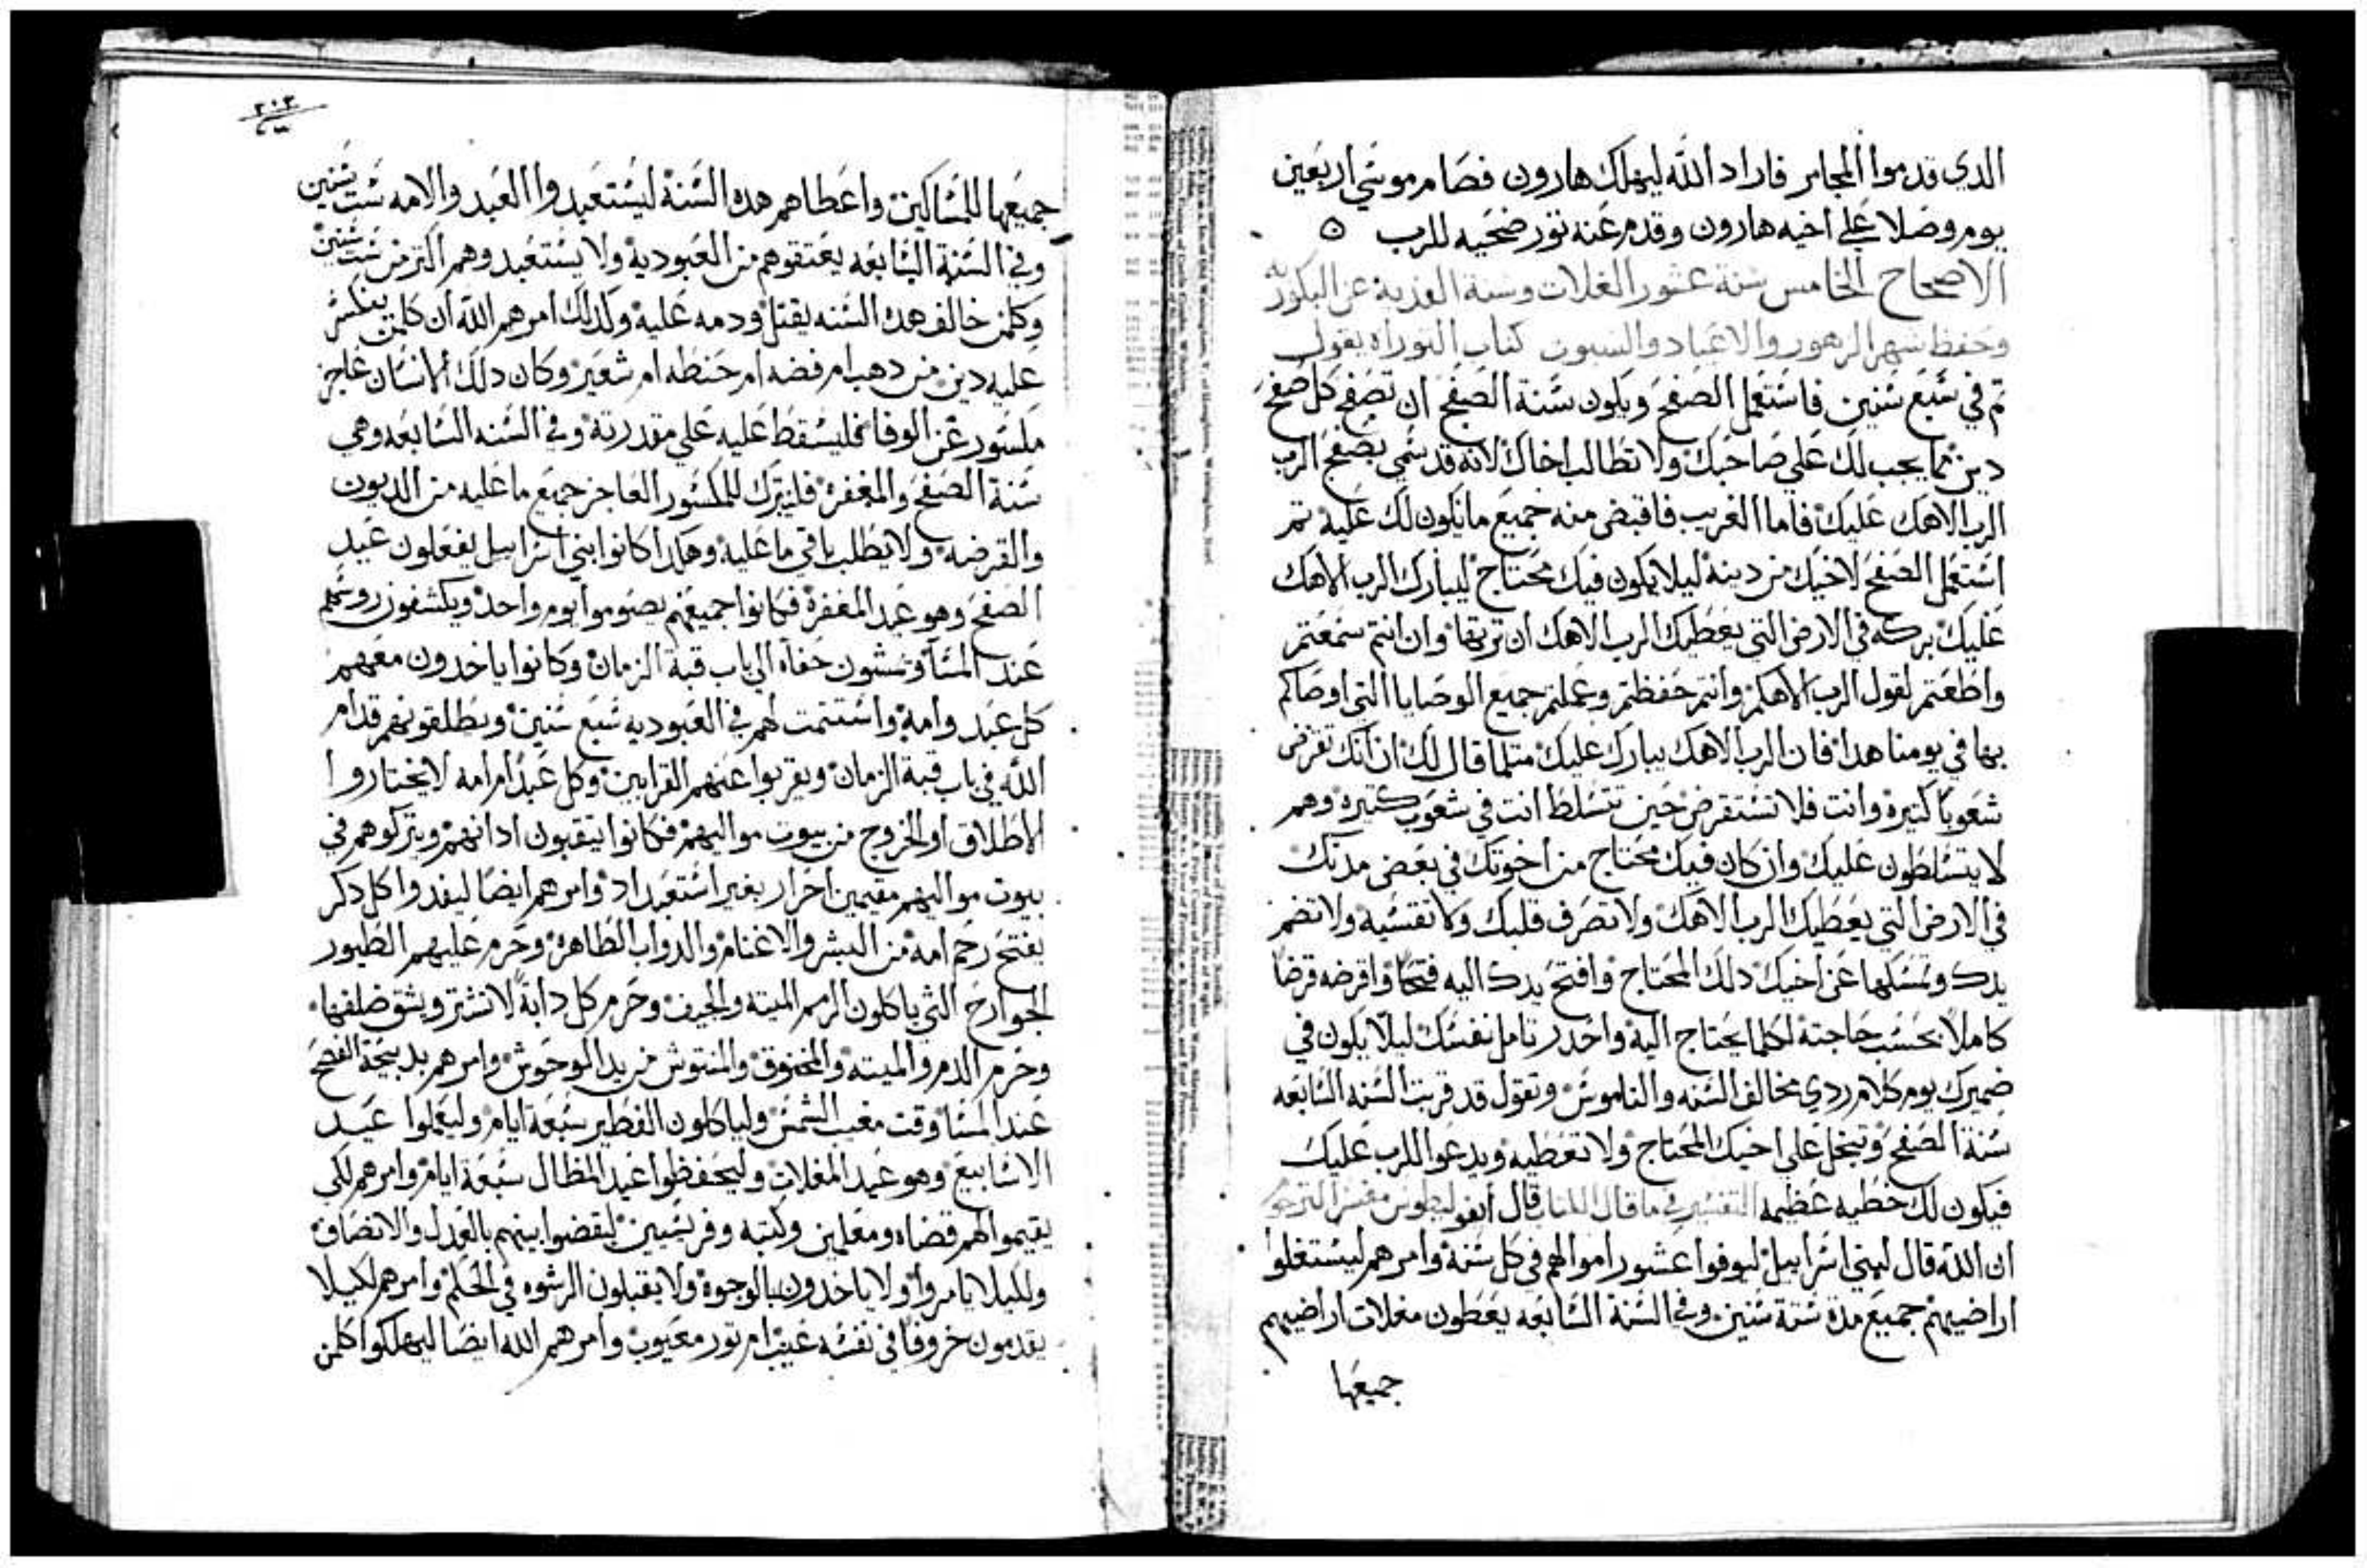 الدي قدموا المجامر فاراد الله ليهلك هارون فصام موسي اربعين
يوم وصلا علي اخيه هارون وقدم عنه تور ضحيه للرب
الاصحاح الخامس سنة عشور الغلات وسنة الفدية عن البكوريه
وحفظ شهر الزهور والاعياد والسبوت كتاب التوراه يقول
تم في سبع سنين فاستعمل الصفح ويكون سنة الصفح ان تصفح كل صفح
دين مما يجب لك علي صاحبك ولا تطالب اخاك لانه قد سمي بصفح الرب
الرب الاهك عليك فاما الغريب فاقبض منه جميع ما يكون لك عليه تم
استعمل الصفح لاخيك من دينه ليلا يكون فيك محتاج ليبارك الرب الاهك
عليك بركه في الارض التي يعطيك الرب الاهك ان ترتها وان انتم سمعتم
واطعتم لقول الرب الاهكم وانتم حفظتم وعملتم جميع الوصايا التي اوصاكم
بها في يومنا هدا فان الرب الاهك يبارك عليك متلما قال لك ان انك تقرض
شعوبا كتيره وانت فلا تستقرض حين تتسلط انت في شعوب كتيره وهم
لا يتسلطون عليك وان كان فيك محتاج من اخوتك في بعض مدنك
في الارض التي يعطيك الرب الاهك ولا تصرف قلبك ولا تقسيه ولا تضم
يدك وتمسكها عن اخيك دلك المحتاج وافتح يدك اليه فتحا واقرضه قرضا
كاملا بحسب حاجته لكلما يحتاج اليه واحدر تامل نفسك ليلا يكون في
ضميرك يوم كلام ردي مخالف السنه والناموس وتقول قد قربت السنه السابعه
سنة الصفح وتبخل علي اخيك المحتاج ولا تعطيه ويدعوا للرب عليك
فيكون لك خطيه عظيمه التفسير في ما قال الكتاب قال ابفوليطوس مفسر الترجوم
ان الله قال لبني اسراييل ليوفوا عشور اموالهم في كل سنة وامرهم ليستغلوا
اراضيهم جميع مدة ستة سنين وفي السنة السابعه يعطون مغلات اراضيهم
جميعها
٢٠٣
جميعها للمساكين واعطاهم هده السنة ليستعبدوا العبد والامه ست سنين
وفي السنة السابعه يعتقوهم من العبودية ولا يستعبدوهم اكتر من ست سنين
وكلمن خالف هده السنه يقتل ودمه عليه ولدلك امرهم الله ان كلمن ينكسر
عليه دين من دهب ام فضه ام حنطه ام شعير وكان دلك الانسان عاجز
مكسور عن الوفا فليسقط عليه علي مقدرته وفي السنه السابعه وهي
سنة الصفح والمغفرة فليترك للمكسور العاجز جميع ما عليه من الديون
والقرضه ولا يطلب باقي ما عليه وهكدا كانوا بني اسراييل يفعلون عيد
الصفح وهو عيد المغفرة فكانوا جميعهم يصوموا يوم واحد ويكشفون روسهم
عند المسا ويمشون حفاة الي باب قبة الزمان وكانوا ياخدون معهم
كل عبد وامه واستتمت لهم في العبوديه سبع سنين ويطلقونهم قدام
الله في باب قبة الزمان ويقربوا عنهم القرابين وكل عبد ام امه لا يختاروا
الاطلاق او الخروج من بيوت مواليهم فكانوا يتقبون ادانهم ويتركوهم في
بيوت مواليهم مقيمين احرار بغير استعبداد وامرهم ايضا ليفدوا كل دكر
يفتح رحم امه من البشر والاغنام والدواب الطاهرة وحرم عليهم الطيور
الجوارح التي ياكلون الرمم الميته والجيف وحرم كل دابة لا تشتر ويشق ضلفها
وحرم الدم والميته والمخنوق والمنتوش من يد الوحوش وامرهم بدبيحة الفصح
عند المسا وقت مغيب الشمس ولياكلون الفطير سبعة ايام وليعملوا عيد
الاسابيع وهو عيد المغلات وليحفظوا عيد المظال سبعة ايام وامرهم لكي
يقيموا لهم قضاه ومعلمين وكتبه وفريسيين ليقضوا بينهم بالعدل والانصاف
ولكيلا يامروا ولا ياخدون بالوجوة ولا يقبلون الرشوه في الحكم وامرهم لكيلا
يقدمون خروفا في نفسه عيب ام تور معيوب وامرهم الله ايضا ليهلكوا كلمن